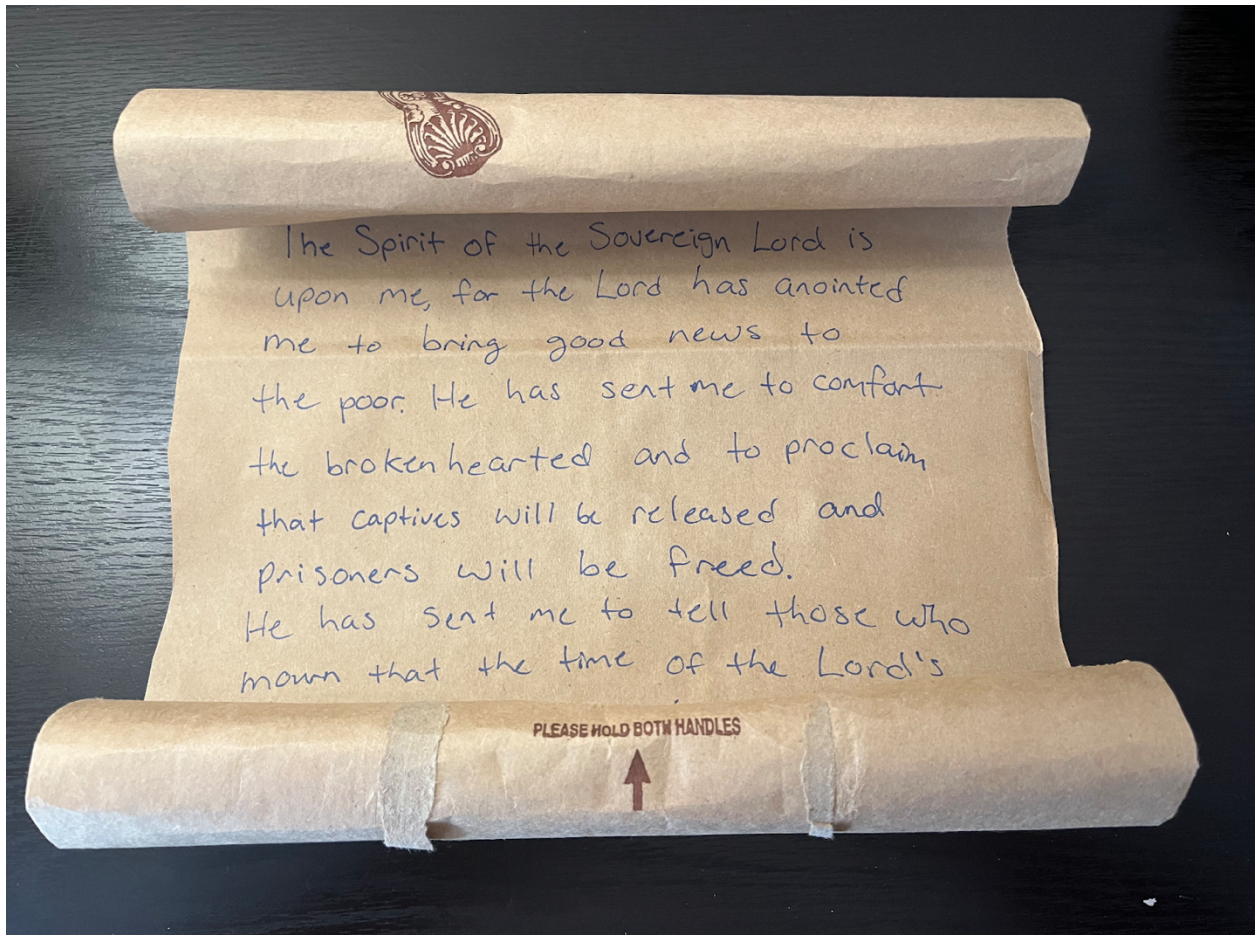 The Spirit of the Sovereign Lord is
upon me, for the Lord has anointed
me to bring good news to
the poor. He has sent me to comfort
the brokenhearted and to proclaim
that captives will be released and
prisoners will be freed.
He has sent me to tell those who
mourn that the time of the Lord's
PLEASE HOLD BOTH HANDLES